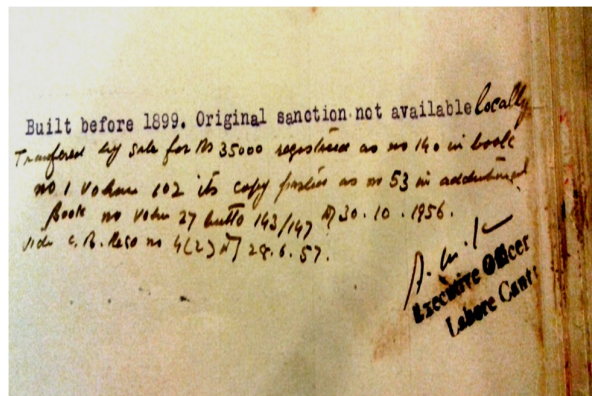 Built before 1899. Original sanction not available locally
Transfered by sale for Rs 35000 registered as no 140 in book
no 1 volume 602 its copy pasted as no 53 in additional
Book no volm 27 butto 143/147 d/ 30.10.1956.
vide C.B. Reso no 4(2) d/ 28.6.57.
Executive Officer
Lahore Cantt